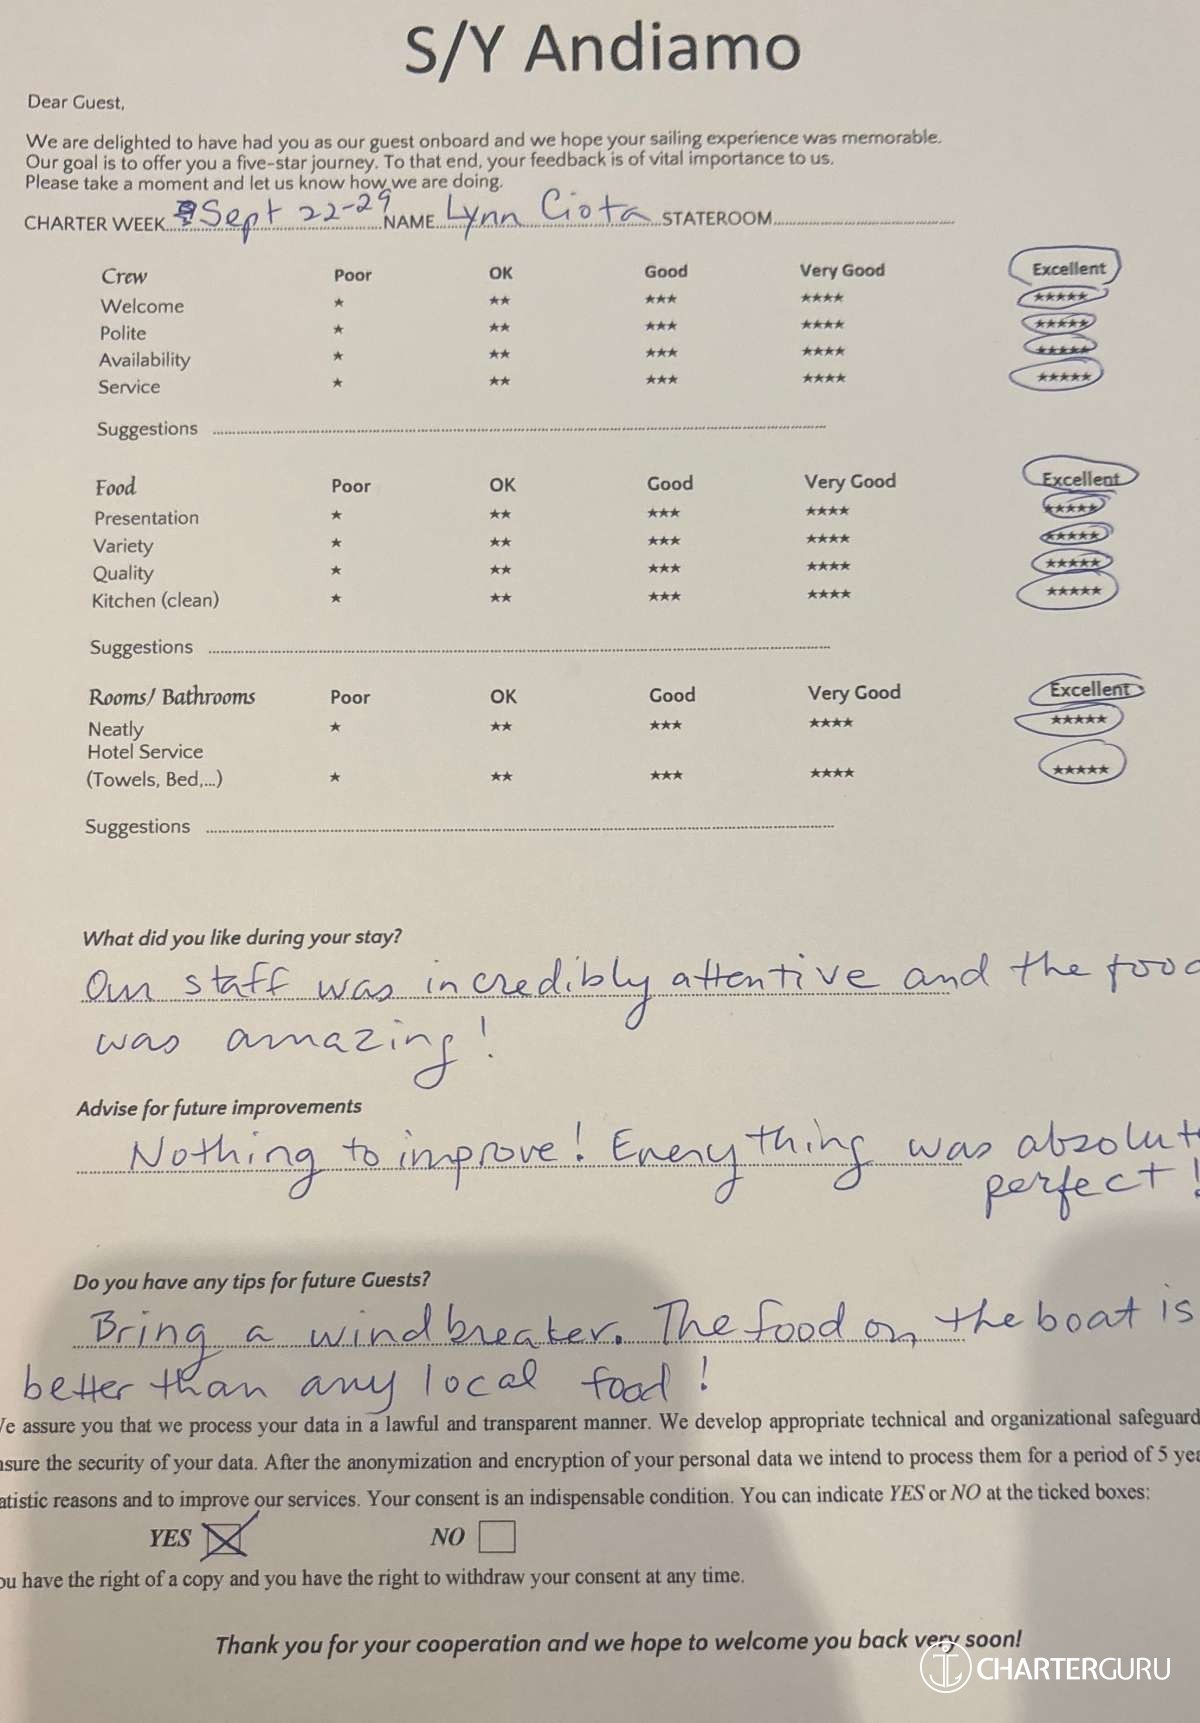 S/Y Andiamo
Dear Guest,
We are delighted to have had you as our guest onboard and we hope your sailing experience was memorable.
Our goal is to offer you a five-star journey. To that end, your feedback is of vital importance to us.
Please take a moment and let us know how we are doing.
CHARTER WEEK Sept 22-29 NAME Lynn Ciota STATEROOM
Crew Poor OK Good Very Good Excellent
Welcome ★ ★★ ★★★ ★★★★ ★★★★★
Polite ★ ★★ ★★★ ★★★★ ★★★★★
Availability ★ ★★ ★★★ ★★★★ ★★★★★
Service ★ ★★ ★★★ ★★★★ ★★★★★
Suggestions
Food Poor OK Good Very Good Excellent
Presentation ★ ★★ ★★★ ★★★★ ★★★★★
Variety ★ ★★ ★★★ ★★★★ ★★★★★
Quality ★ ★★ ★★★ ★★★★ ★★★★★
Kitchen (clean) ★ ★★ ★★★ ★★★★ ★★★★★
Suggestions
Rooms/ Bathrooms Poor OK Good Very Good Excellent
Neatly ★ ★★ ★★★ ★★★★ ★★★★★
Hotel Service
(Towels, Bed,...) ★ ★★ ★★★ ★★★★ ★★★★★
Suggestions
What did you like during your stay?
Our staff was incredibly attentive and the food
was amazing!
Advise for future improvements
Nothing to improve! Everything was absolut
perfect!
Do you have any tips for future Guests?
Bring a windbreaker. The food on the boat is
better than any local food!
e assure you that we process your data in a lawful and transparent manner. We develop appropriate technical and organizational safeguard
nsure the security of your data. After the anonymization and encryption of your personal data we intend to process them for a period of 5 yea
atistic reasons and to improve our services. Your consent is an indispensable condition. You can indicate YES or NO at the ticked boxes:
YES NO
ou have the right of a copy and you have the right to withdraw your consent at any time.
Thank you for your cooperation and we hope to welcome you back very soon!
CHARTERGURU